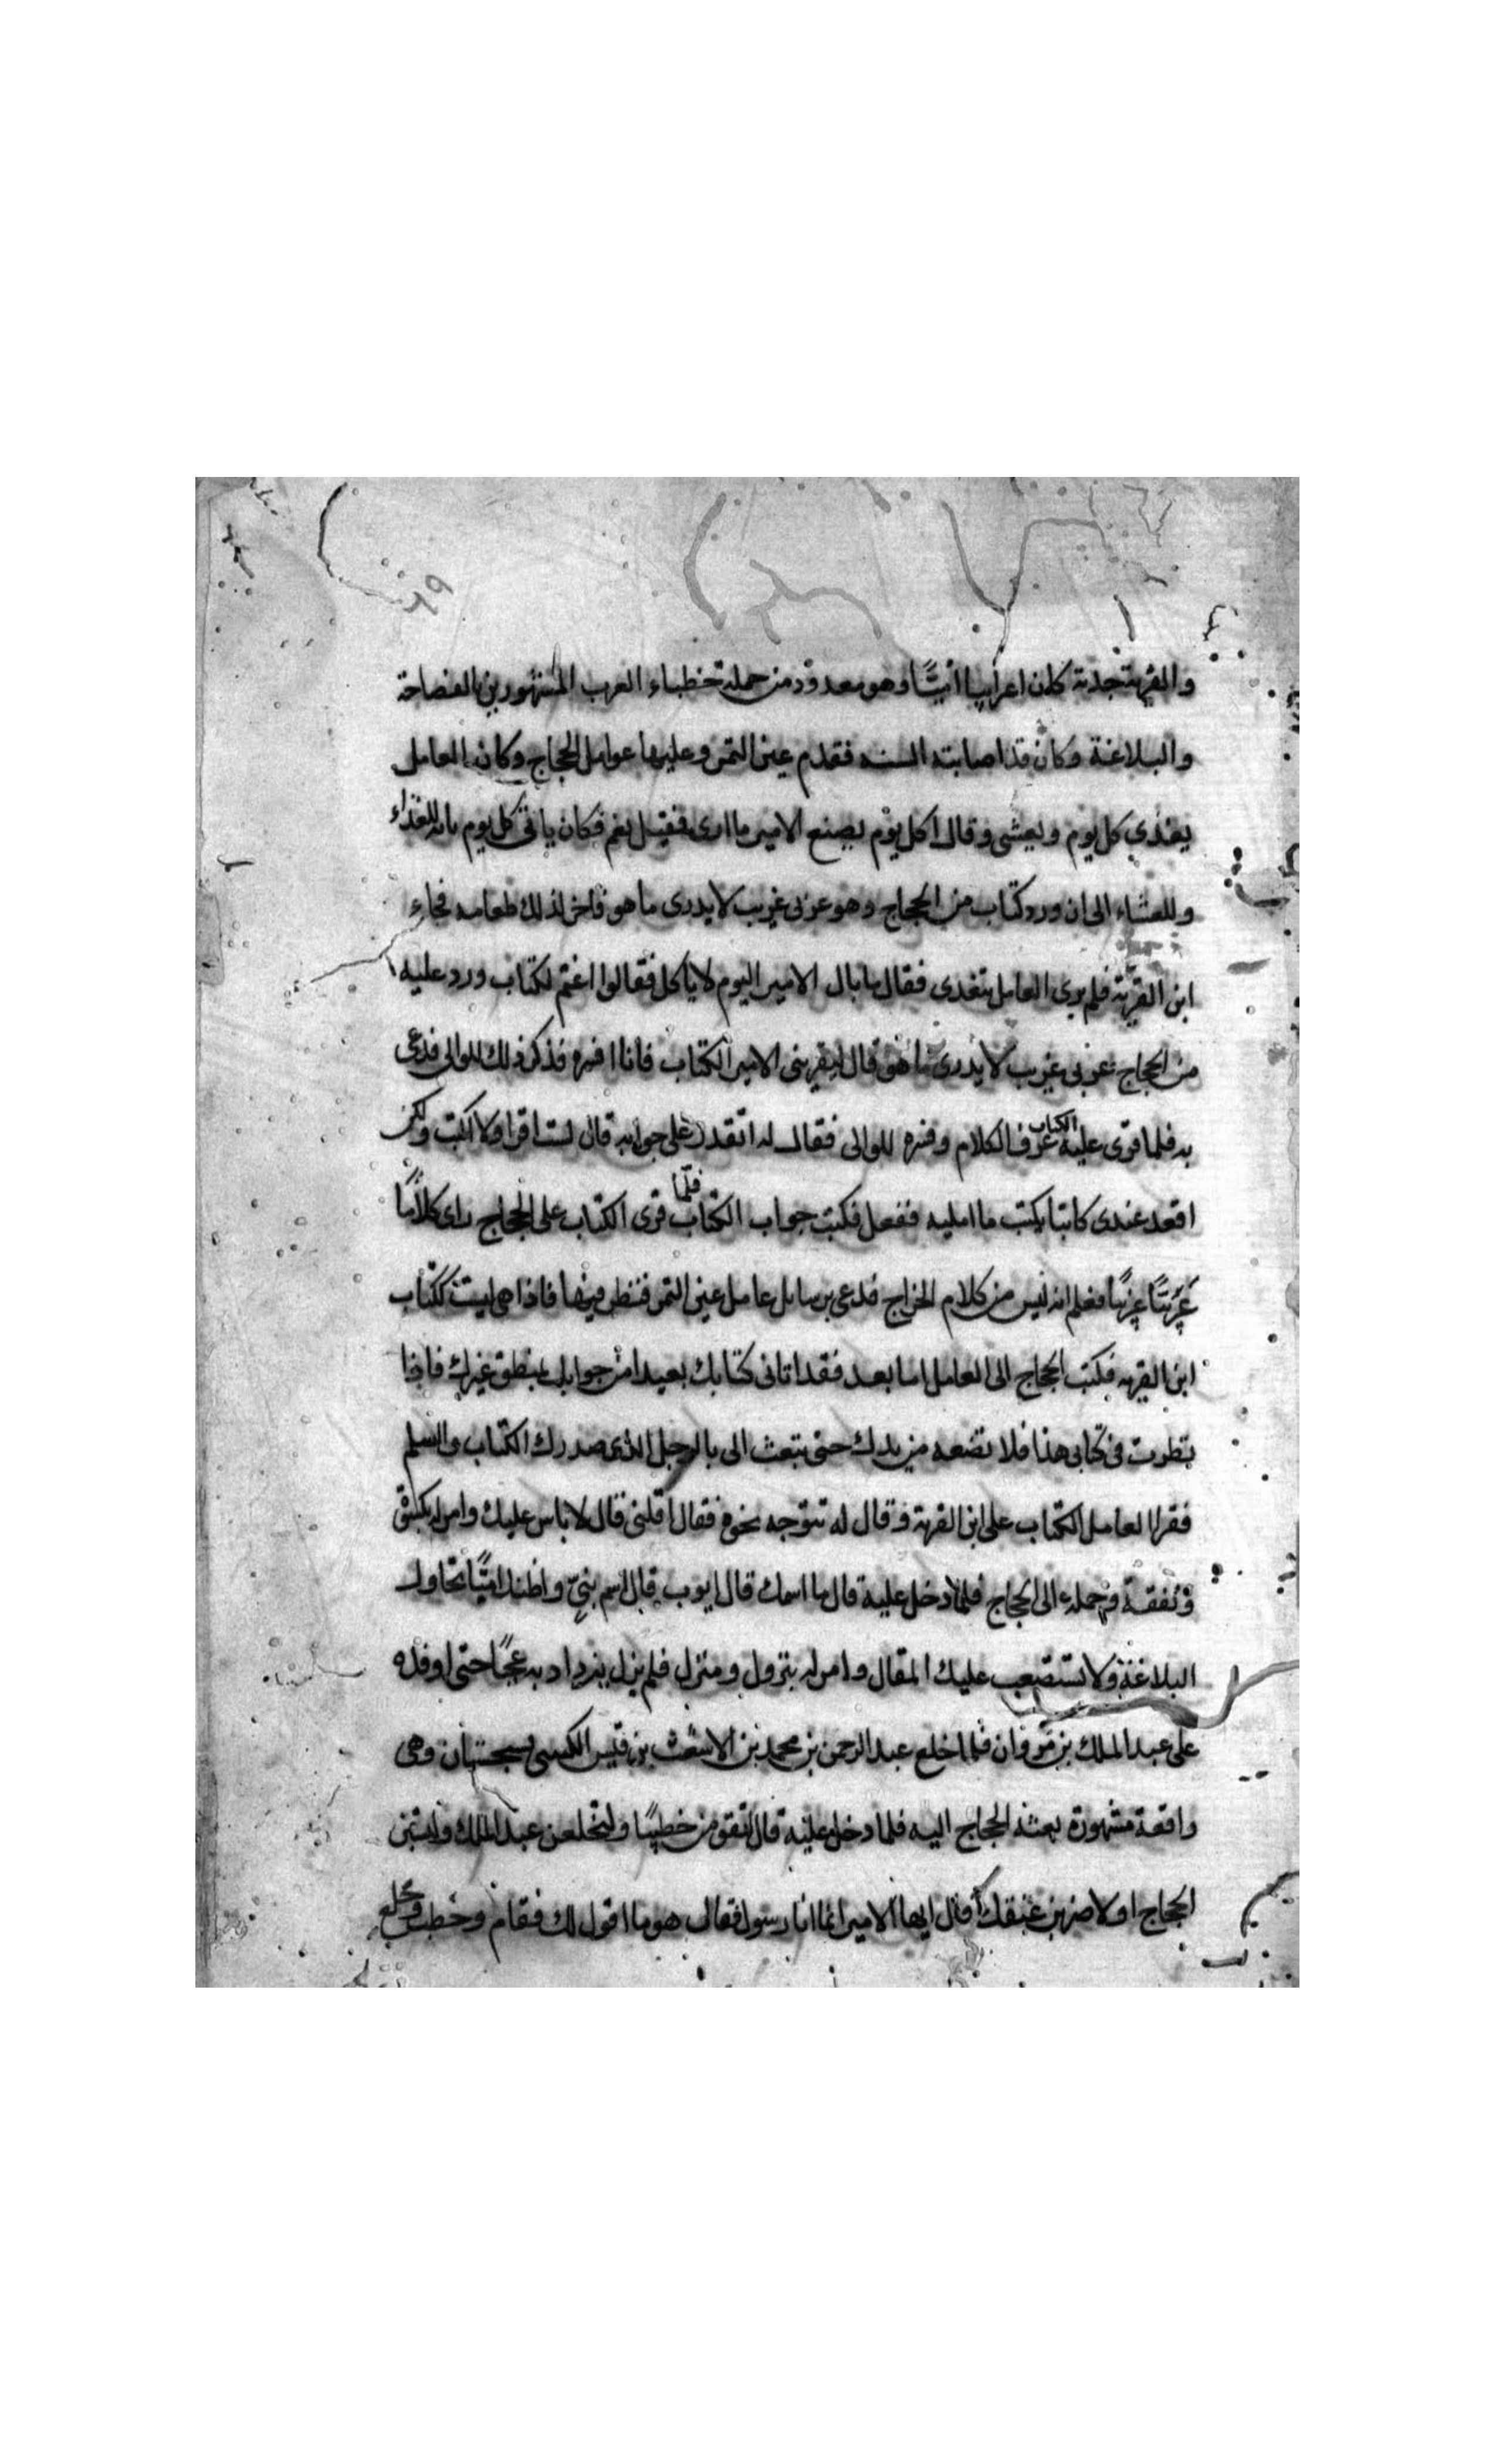 ٦٩
والقرية جدته كان اعرابيا اميًّا وهو معدود من جملة خطباء العرب المشهورين بالفصاحة
والبلاغة وكان قد اصابته السنه فقدم عين التمر وعليها عوامل الحجاج وكان العامل
يغذي كل يوم ويعشى وقال اكل يوم يصنع الامير ما ارى فقيل نعم فكان ياتى كل يوم بابه للغذاء
وللعشاء الى ان ورد كتاب من الحجاج وهو عربى غريب لا يدرى ما هو فاخر لذلك طعامه فجاء
ابن القرية فلم يرى العامل يتغدى فقال ما بال الامير اليوم لا ياكل فقالوا اغتم لكتاب ورد عليه
من الحجاج عربى غريب لا يدرى ما هو قال ليقرينى الامير الكتاب فانا افسره فذكر ذلك للوالى فدعى
به فلما قرى عليه الكتاب عرف الكلام وفسره للوالى فقال له اتقدر على جوابه قال لست اقرا ولا اكتب ولكن
اقعد عندى كاتبا يكتب ما امليه ففعل فكتب جواب الكتاب فلمّا قرى الكتاب على الحجاج راى كلامًا
عَرَبيًّا غريبًا فعلم انه ليس من كلام الخراج فدعى برسايل عامل عين التمر فنظر فيها فاذا هى ليست ككتاب
ابن القريه فكتب الحجاج الى العامل اما بعد فقد اتانى كتابك بعيدا من جوابك بمنطق غيرك فاذا
نظرت فى كتابى هذا فلا تضعه من يدك حتى تبعث الى بالرجل الذى صدر لك الكتاب والسلم
فقرا العامل الكتاب على ابن القرية وقال له تتوجه نحوه فقال اقلنى قال لا باس عليك وامر له بكسوة
ونفقة وحمله الى الحجاج فلما دخل عليه قال ما اسمك قال ايوب قال اسم نبىّ واظنك اميًّا تحاول
البلاغة ولا تستصعب عليك المقال وامر له بنزول ومنزل فلم يزل يزداد به عجبًا حتى اوفده
على عبد الملك بن مروان فلما خلع عبد الرحمن بن محمد بن الاشعث بن قيس الكندى بسجستان وهى
واقعة مشهورة بعثه الحجاج اليه فلما دخل عليه قال لتقومن خطيبًا ولتخلعن عبد الملك ولتشتمن
الحجاج او لاضربن عنقك قال ايها الامير انما انا رسول فقال هو ما اقول لك فقام وخطب وخلع